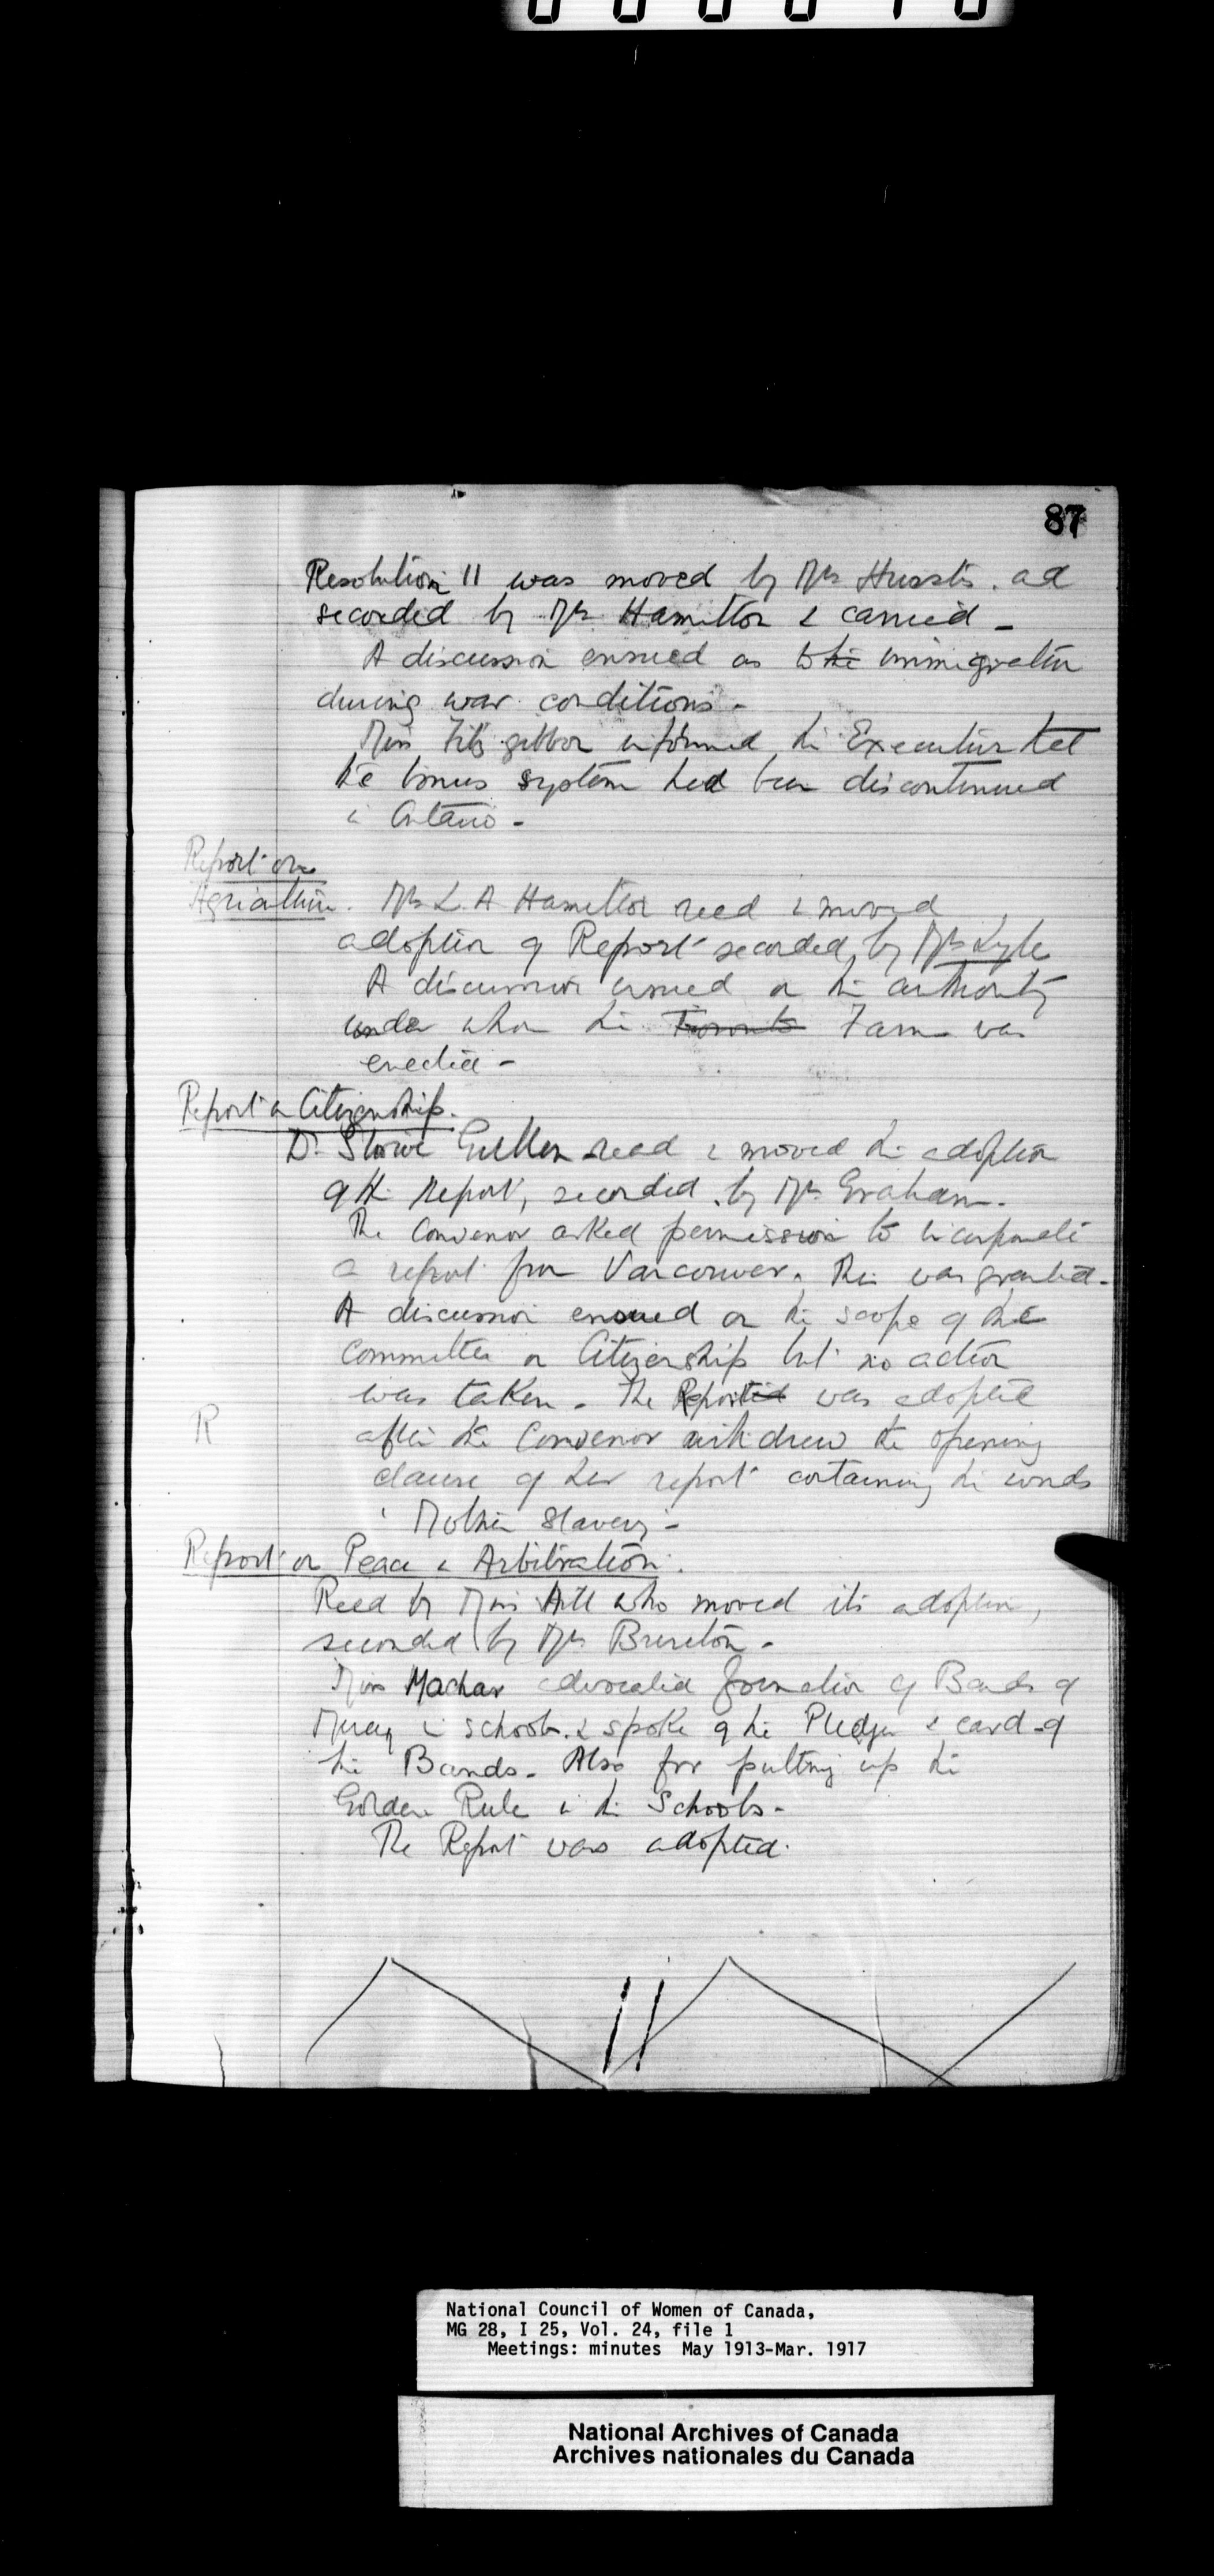 87
Resolution 11 was moved by Mrs Huestis. and
seconded by Mrs Hamilton & carried -
A discussion ensued as to the immigration
during war conditions -
Miss Fitzgibbon informed the Executive that
the bonus system had been discontinued
in Ontario -
Report on
Agriculture. Mrs L. A Hamilton read & moved
adoption of Report seconded by Mrs Lyle
A discussion ensued on the authority
under whom the Toronto Farm was
erected -
Report on Citizenship.
Dr. Stowe Gullen read & moved the adoption
of the Report, seconded by Mrs Graham.
The Convenor asked permission to incorporate
a report from Vancouver. This was granted.
A discussion ensued on the scope of the
Committee on Citizenship but no action
was taken. The Reported was adopted
R after the Convenor withdrew the opening
clause of her report containing the words
' Mother Slavery -
Report on Peace & Arbitration.
Read by Miss Hill who moved its adoption,
seconded by Mrs Brereton -
Miss Machar advocated formation of Bands of
Mercy in schools & spoke of the Pledge & card of
the Bands. Also for putting up the
Golden Rule in the Schools -
The Report was adopted.
National Council of Women of Canada,
MG 28, I 25, Vol. 24, file 1
Meetings: minutes May 1913-Mar. 1917
National Archives of Canada
Archives nationales du Canada